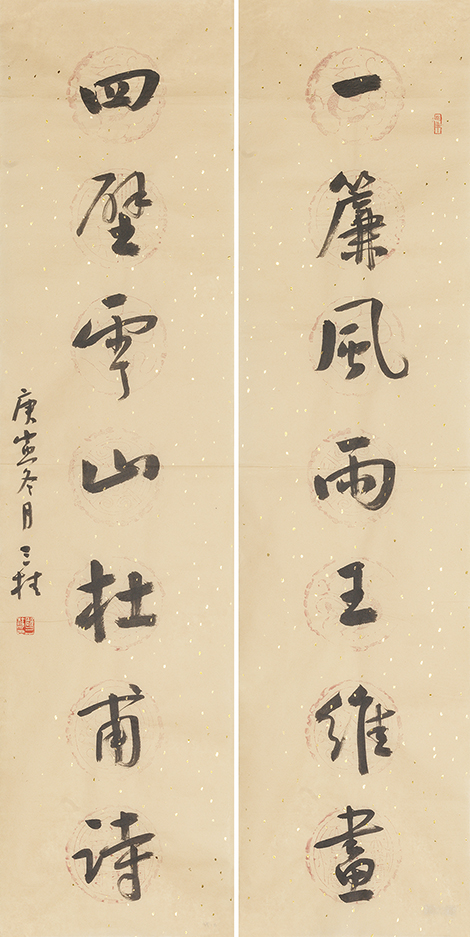 一簾風雨王維畫
四壁雲山杜甫詩
庚寅冬月